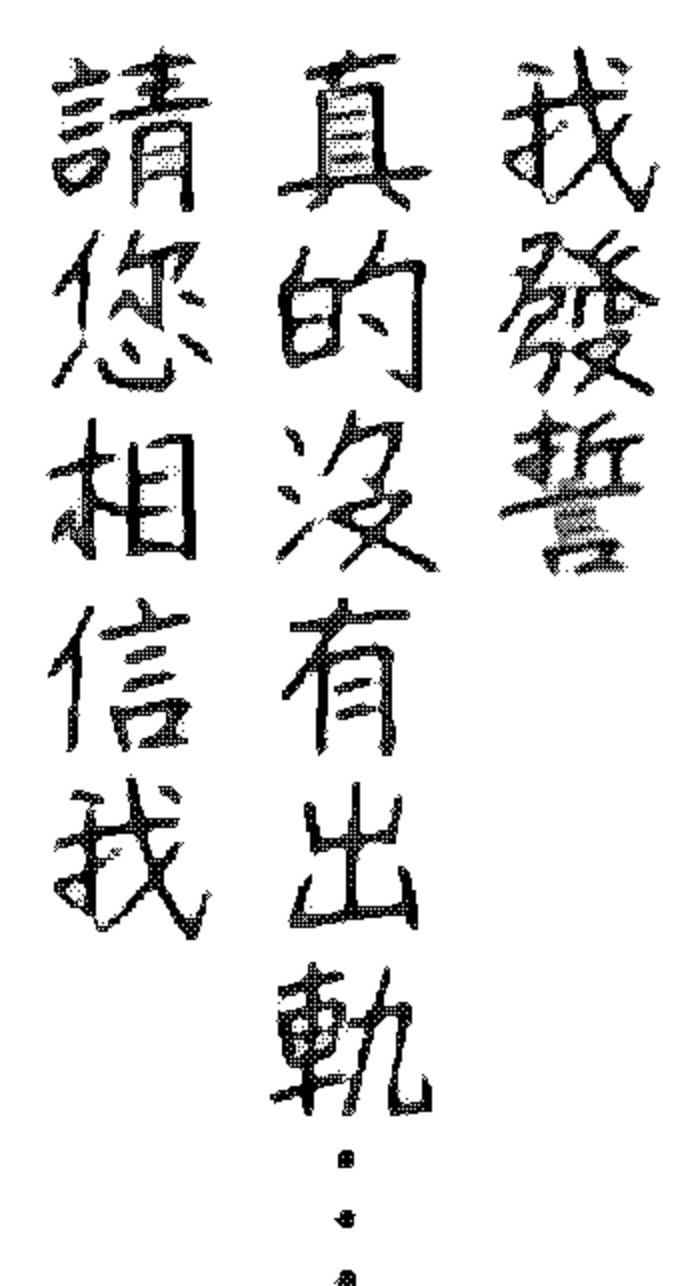 我發誓
真的沒有出軌...
請您相信我